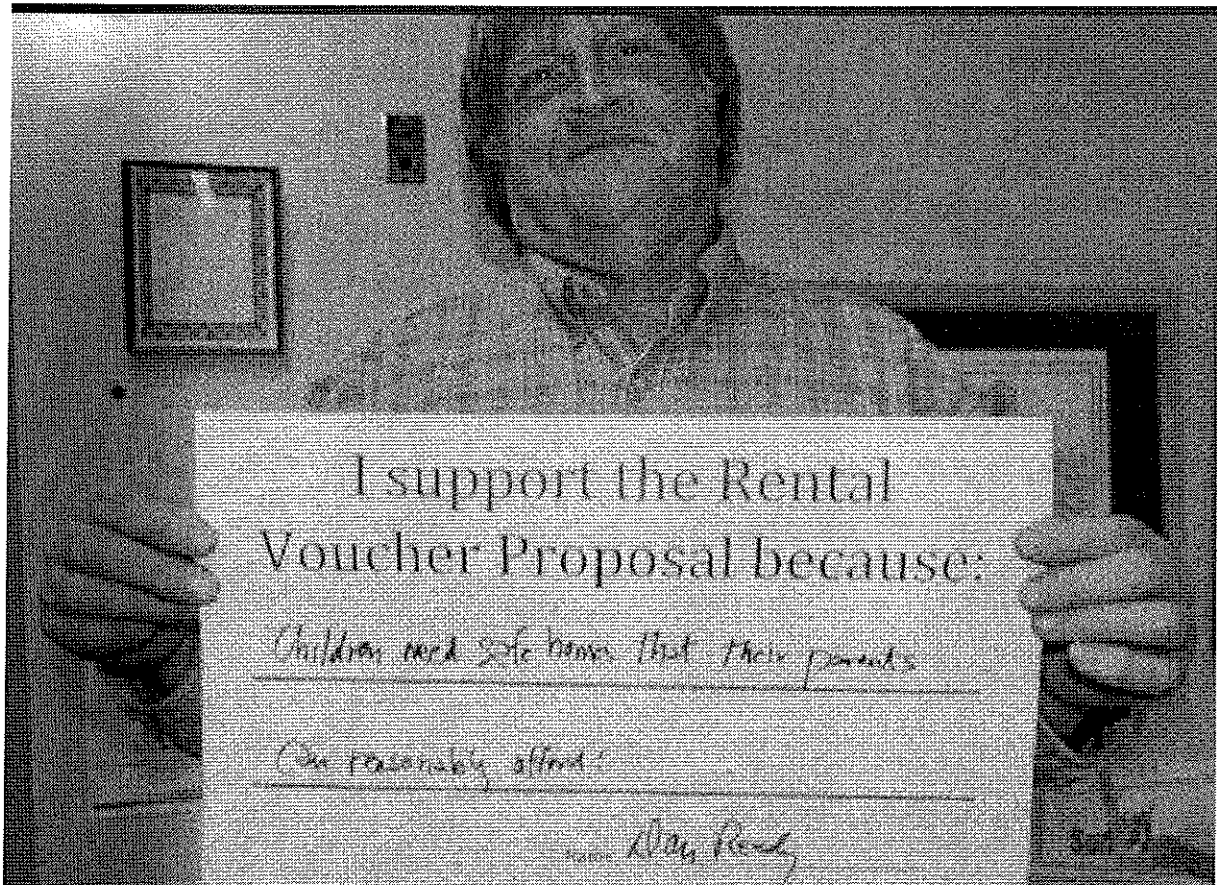 I support the Rental
Voucher Proposal because:
Children need safe homes that their parents
Can reasonably afford!
Name